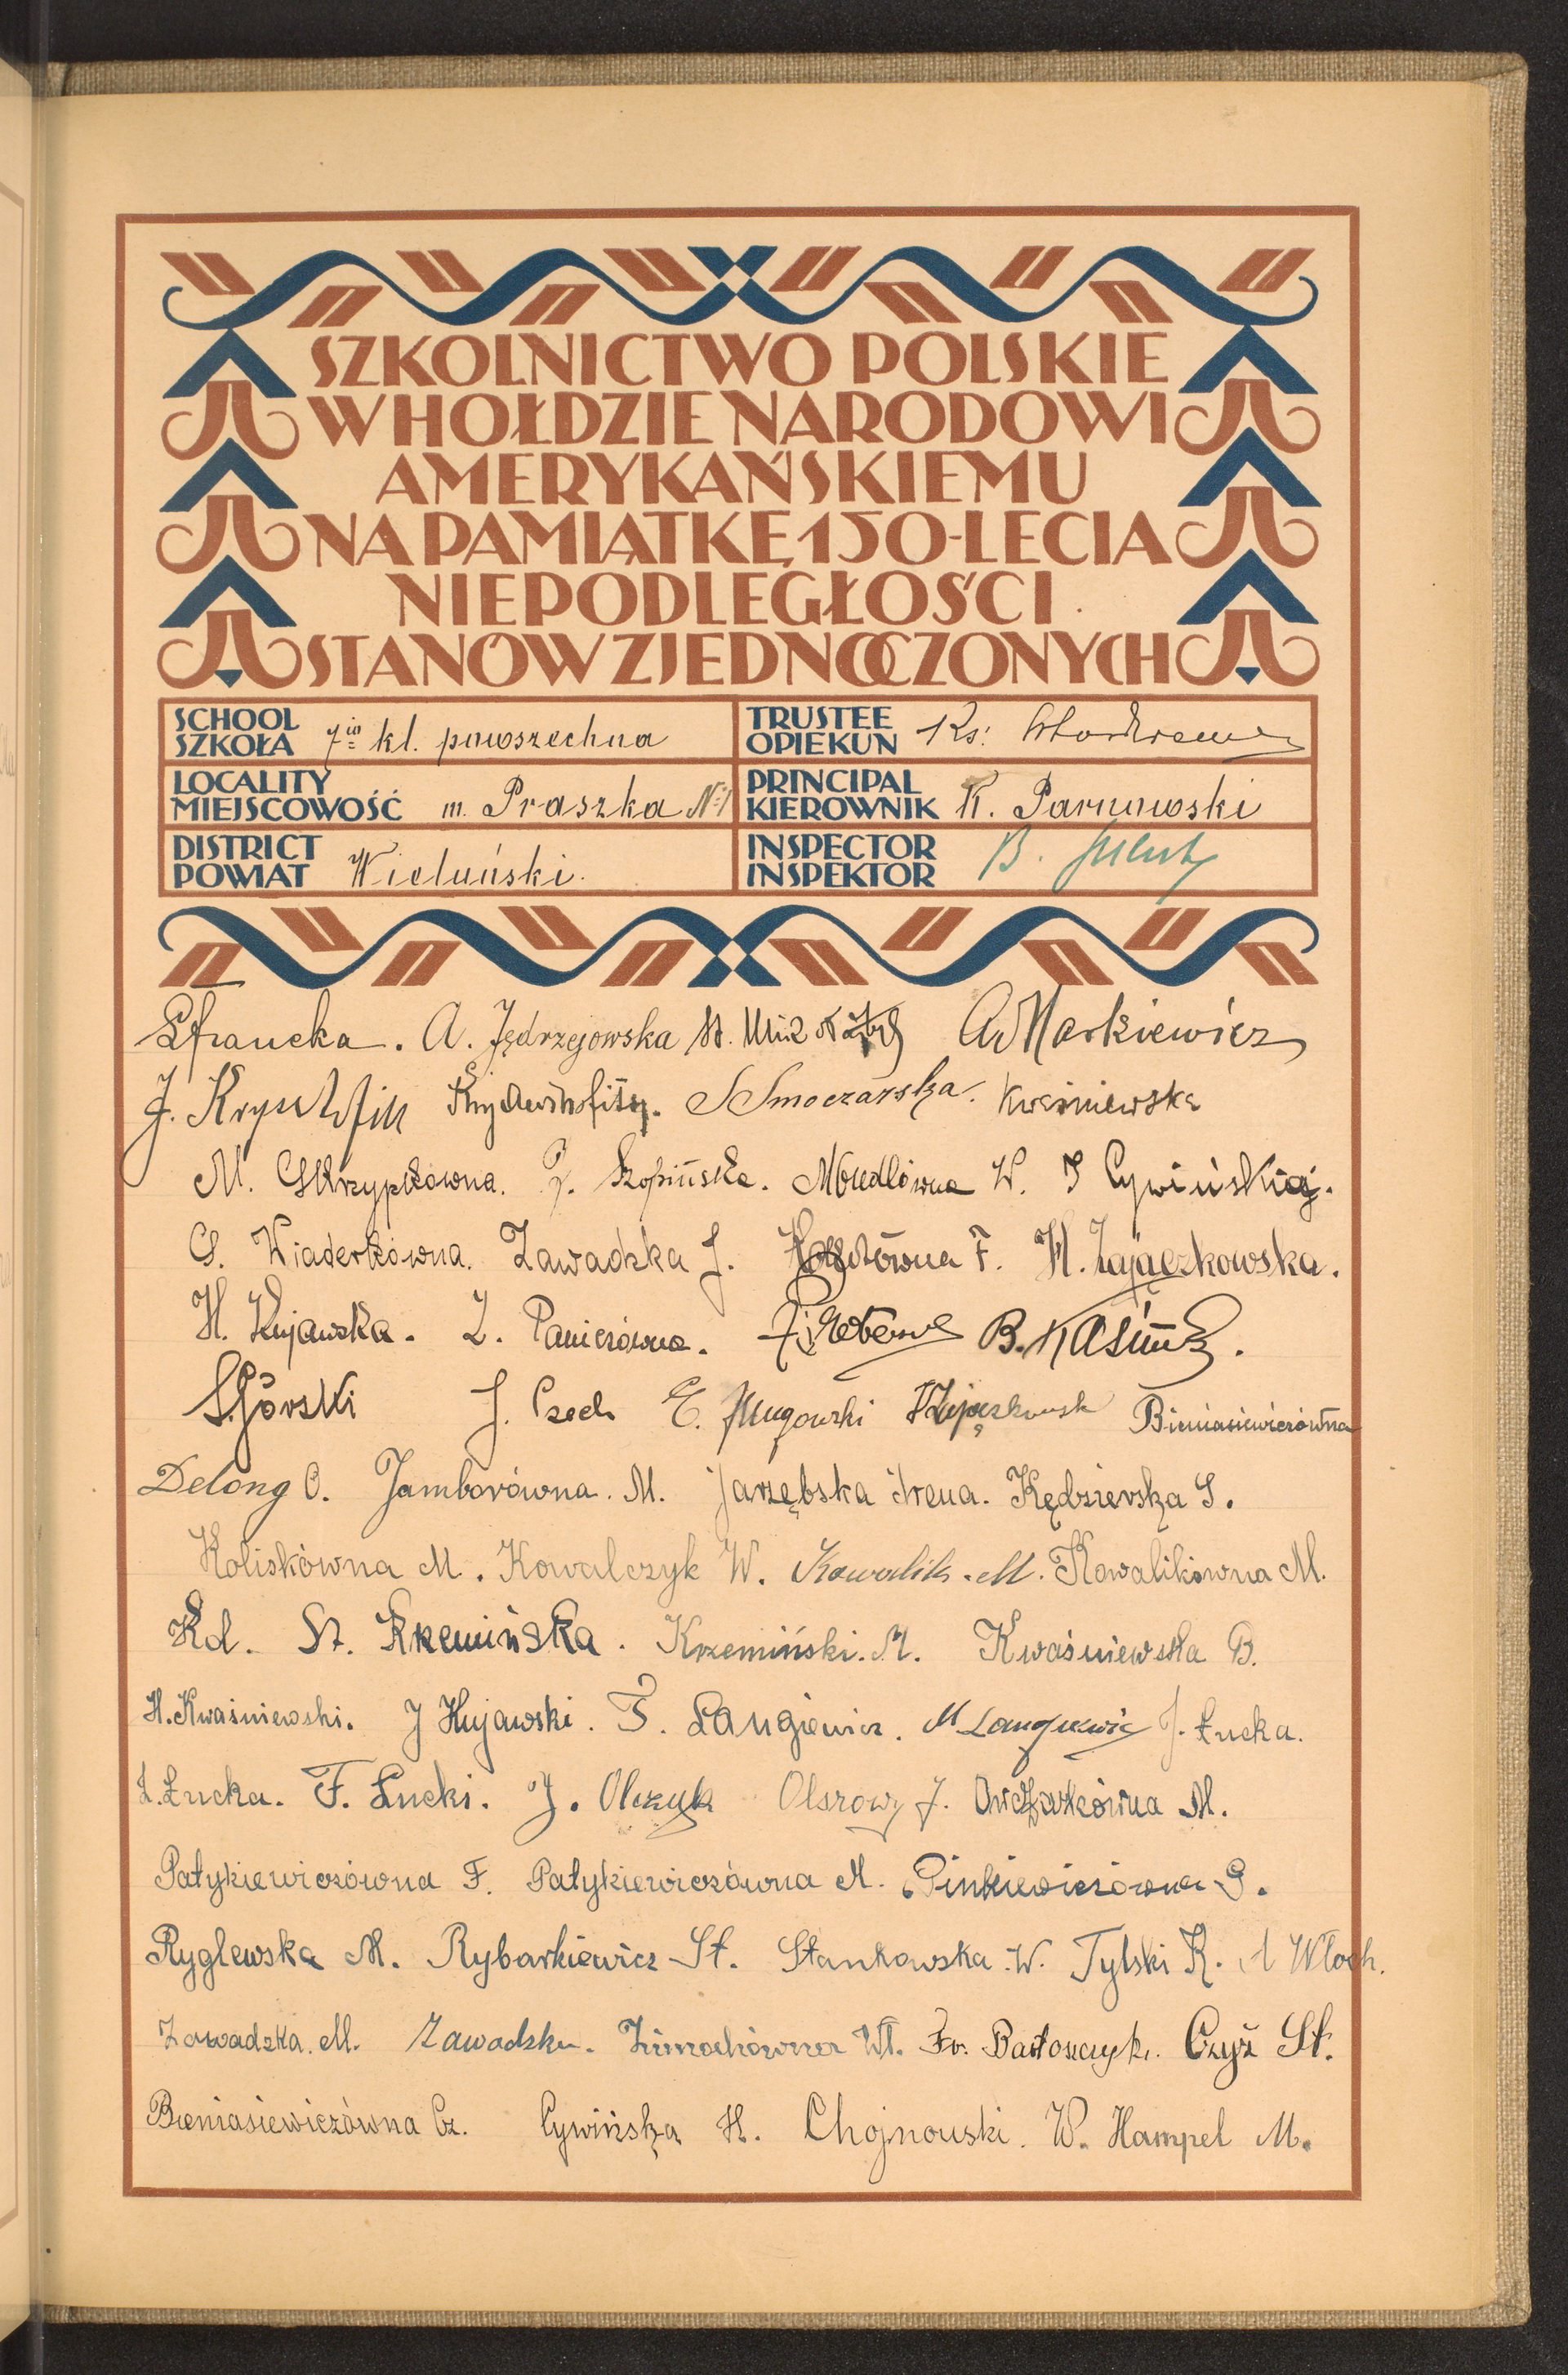 SZKOLNICTWO POLSKIE
W HOŁDZIE NARODOWI
AMERYKAŃSKIEMU
NA PAMIĄTKĘ 150-LECIA
NIEPODLEGŁOŚCI
STANÓW ZJEDNOCZONYCH
SCHOOL
SZKOŁA 7io kl. powszechna
TRUSTEE
OPIEKUN Ks.
LOCALITY
MIEJSCOWOŚĆ m. Praszka № 1
PRINCIPAL
KIEROWNIK K. Parnowski
DISTRICT
POWIAT Wieluński.
INSPECTOR
INSPEKTOR B.
A. Jędrzejowska St. A Markiewicz
J. S Smoczarska. Kwaśniewska
M. Skrzypkówna. Szopińska. W. S Cywińskiej.
S. Wiaderkówna. Zawadzka J. F. H. Zajączkowska.
H. Kujawska. Z. Panierówna. B.
S. Górski J. Czech E. Bieniasiewiczówna
Delong O. Jamborówna. M. Jarzębska Irena. Kędzierska S.
Koliskówna M. Kowalczyk W. Kowalik. M. Kowalikówna M.
Kd. St. Krzemińska. Krzemiński. M. Kwaśniewska B.
H. Kwaśniewski. J Kujawski. F. Langiewicz. M Langiewicz J. Łucka.
Z. Łucka. F. Łucki. J. Olczyk Olszowy J. Owczarkówna M.
Patykiewiczówna F. Patykiewiczówna M. Pinkiewiczówna S.
Ryglewska M. Rybarkiewicz St. Stankowska W. Tylski K. A Włoch.
Zawadzka. M. Zawadzka. Zimochówna Wł. Fr. Bartoszczyk. Czyż St.
Bieniasiewiczówna Cz. Cywińska H. Chojnowski. W. Hampel M.